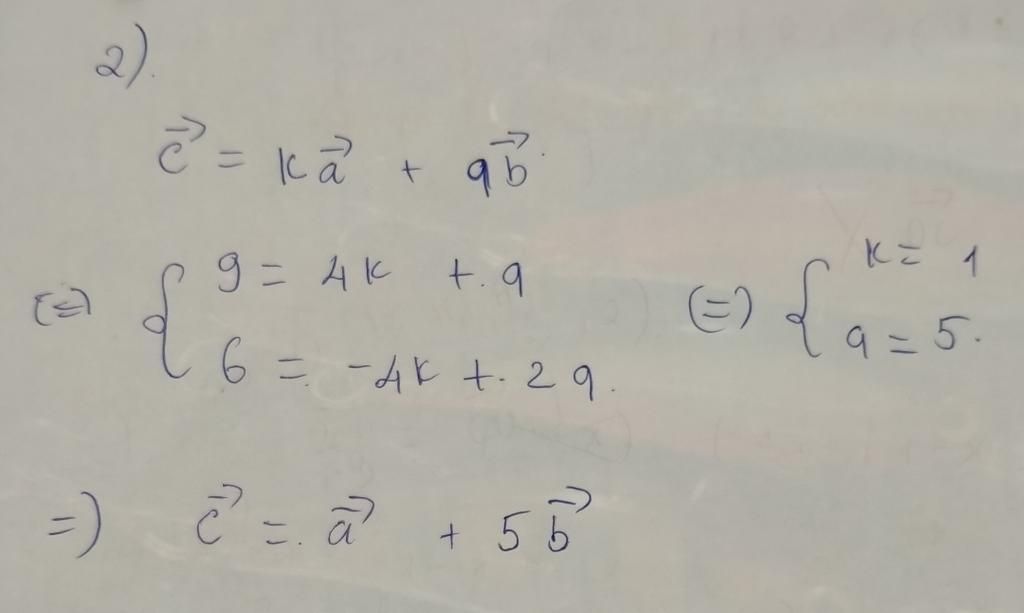 2).
c⃗ = k a⃗ + q b⃗
(=) { 9 = 4k + q (=) { k = 1
6 = -4k + 2q. q = 5.
=) c⃗ = a⃗ + 5 b⃗